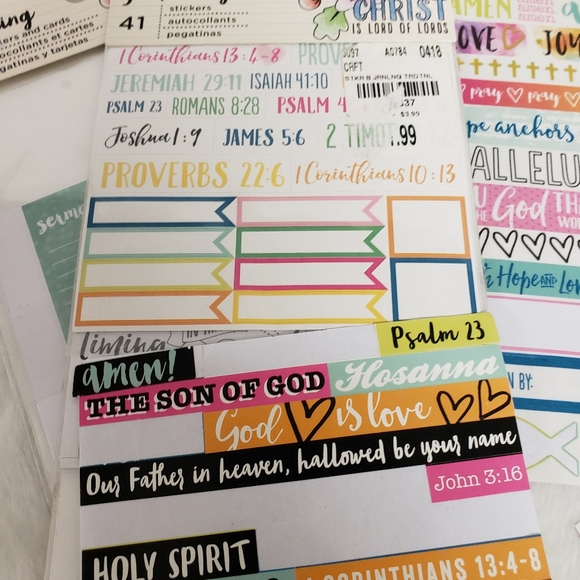 stickers and cards
autocollants et cartes
pegatinas y tarjetas
41
stickers
autocollants
pegatinas
CHRIST
IS LORD OF LORDS
1 Corinthians 13:4-8
PROV
JEREMIAH 29:11
ISAIAH 41:10
PSALM 23
ROMANS 8:28
PSALM 4
Joshua 1:9
JAMES 5:6
2 TIMOT
PROVERBS 22:6
1 Corinthians 10:13
A0784
0418
CRFT
STKR B JRNLNG TRDTNL
$3.99
.99
AMEN
amen
LOVE
JOY
pray
pray
hope anchors
ALLELU
God
Hope AND Lov
N BY:
serm
timing
amen!
Psalm 23
THE SON OF GOD
Hosanna
God is love
Our Father in heaven, hallowed be your name
John 3:16
HOLY SPIRIT
1 CORINTHIANS 13:4-8